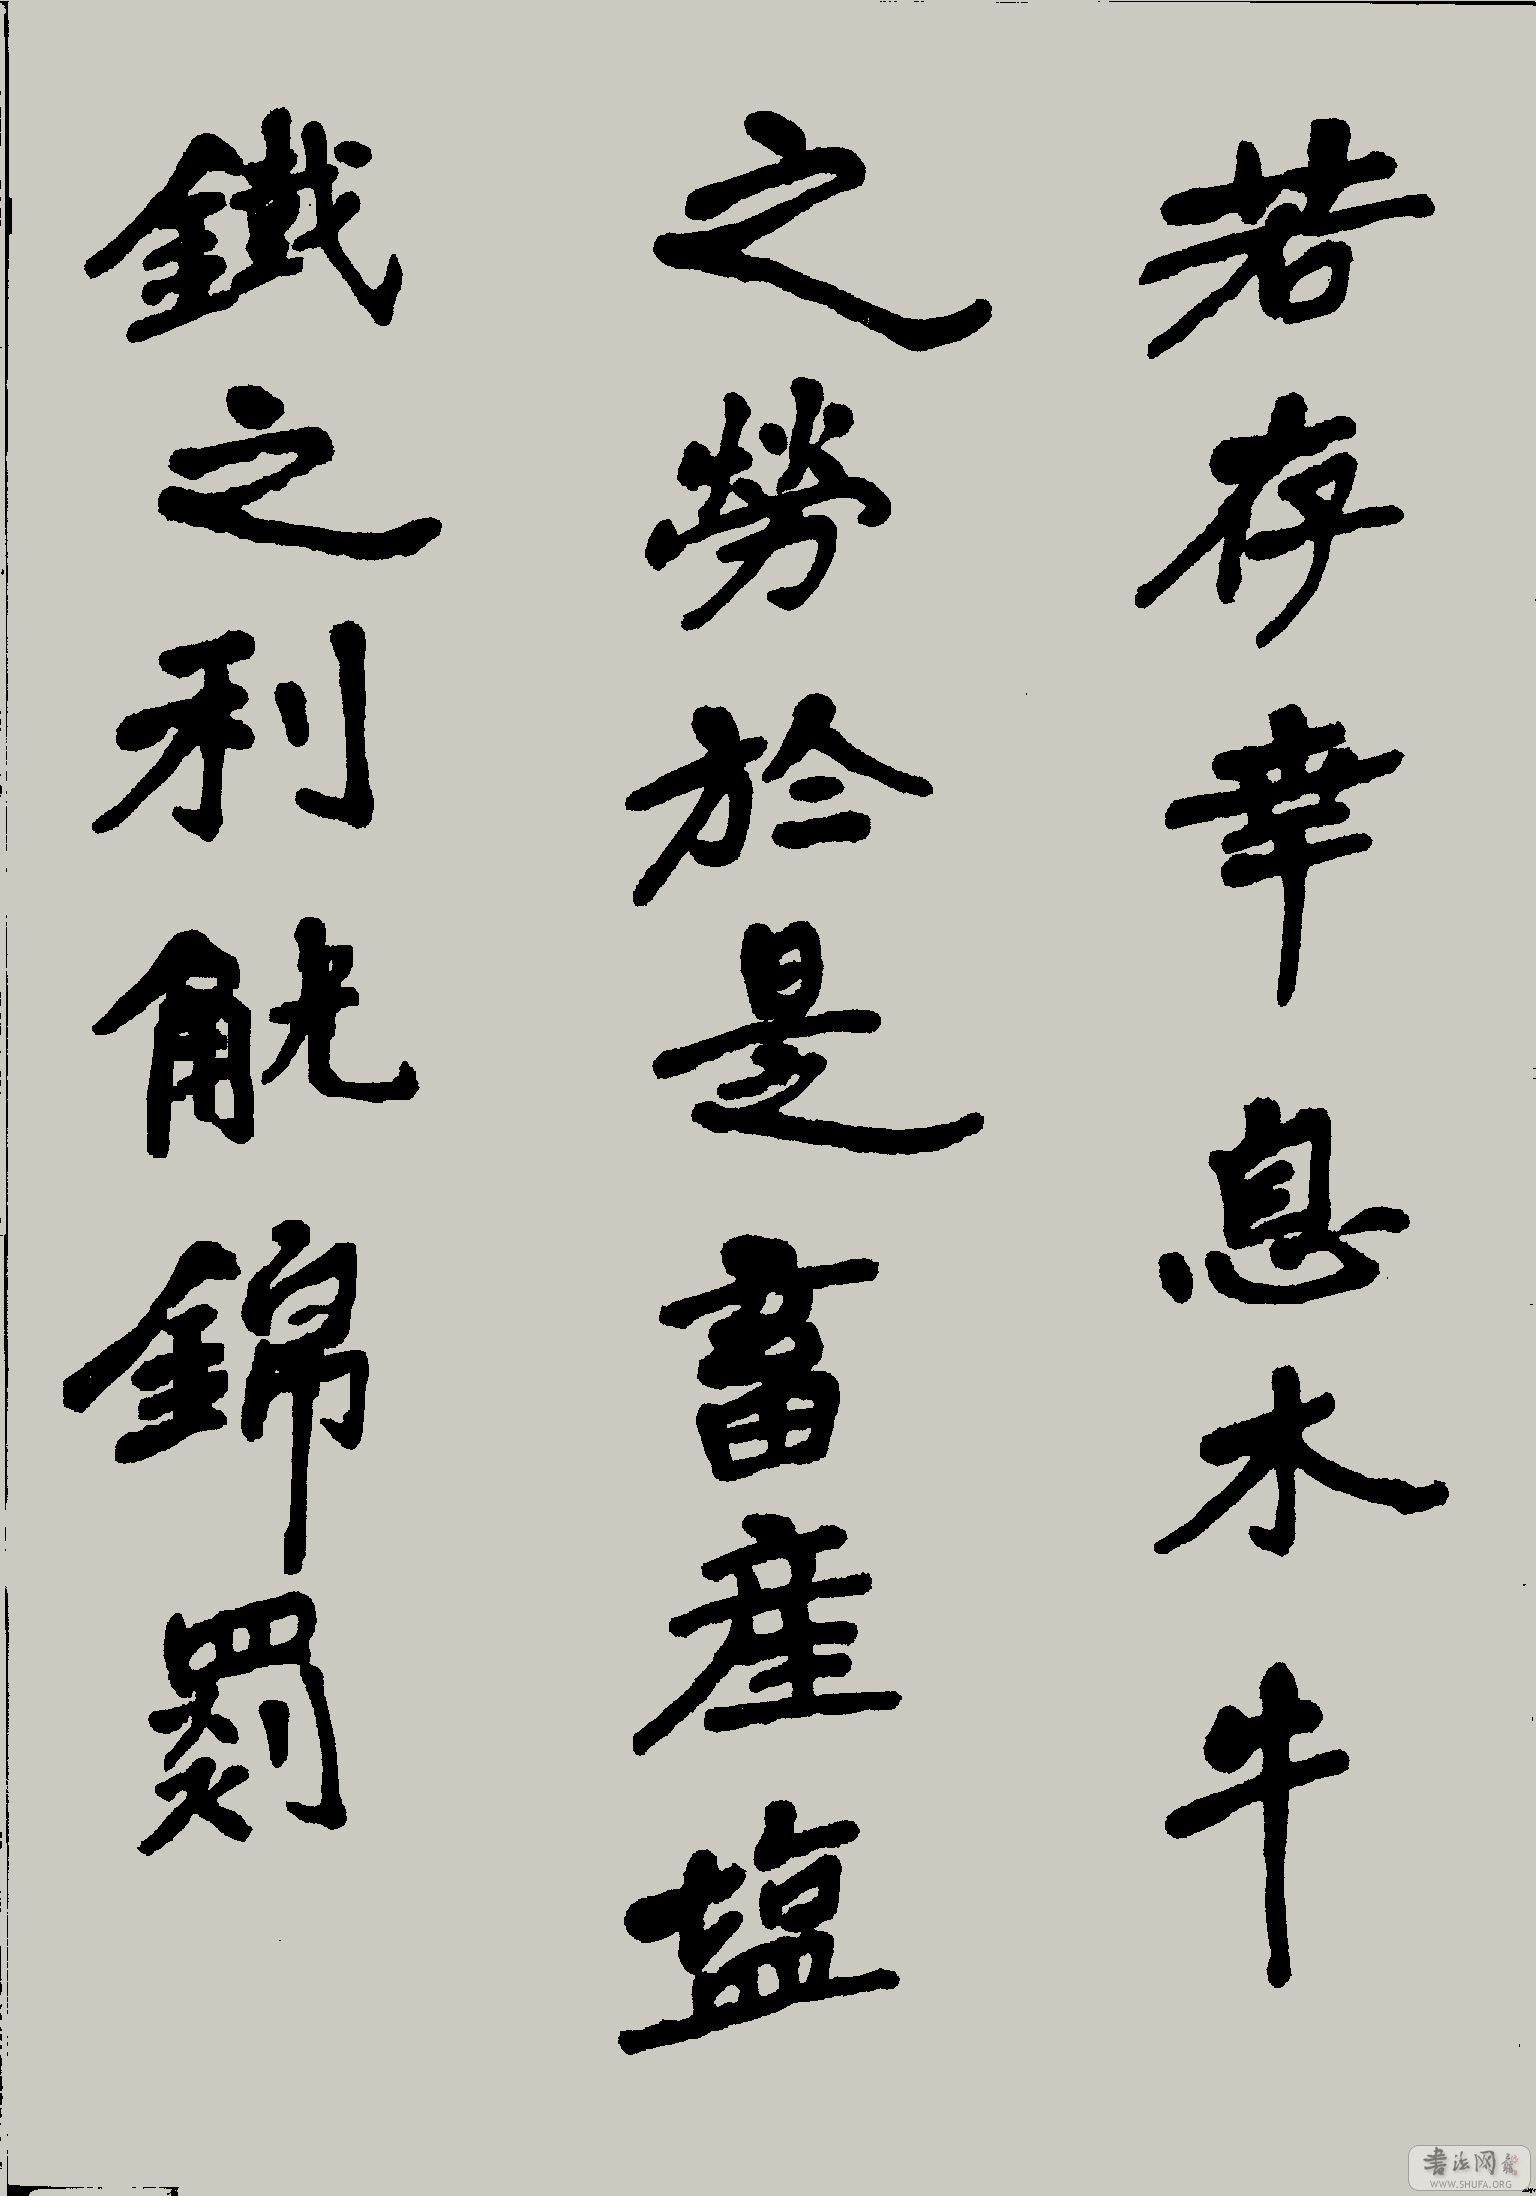 若存幸息木牛
之勞於是畜産塩
鐵之利觥錦罽
書法网
WWW.SHUFA.ORG